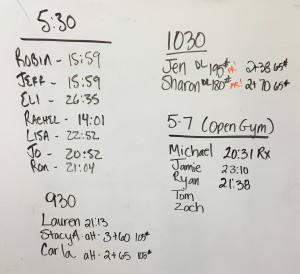 5:30
Robin - 15:59
Jeff - 15:59
Eli - 26:35
Rachel - 14:01
Lisa - 22:52
Jo - 20:52
Ron - 21:04
930
Lauren 21:13
StacyA - alt - 3+60 105#
Carla alt - 2+65 105#
1030
Jen DL 195# PR! 2+38 65#
Sharon DL 180# PR! 2+70 65#
5-7 (Open Gym)
Michael 20:31 Rx
Jamie 23:10
Ryan 21:38
Tom
Zach